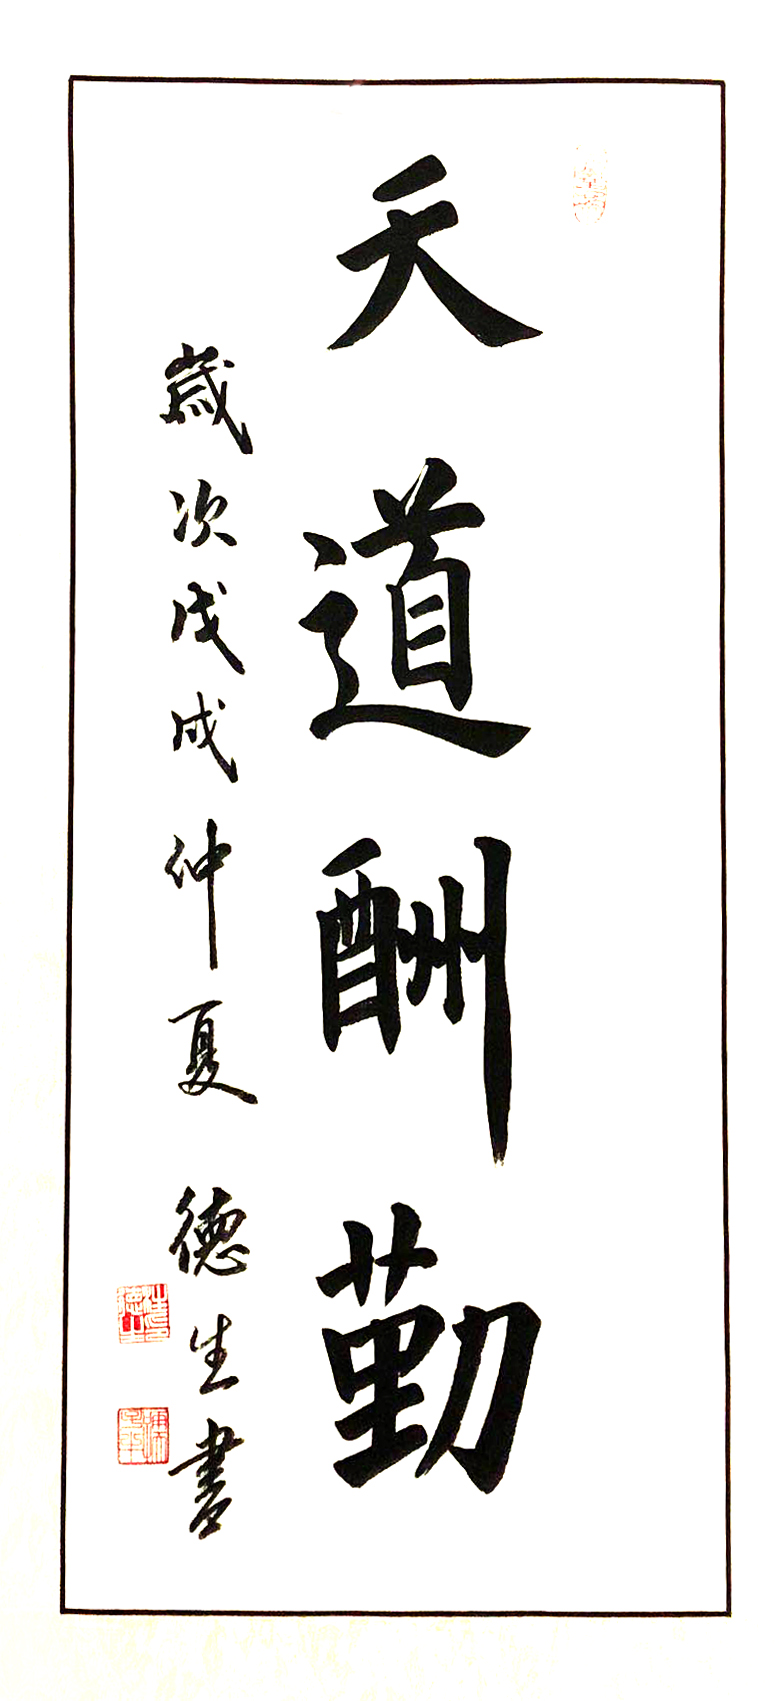 天道酬勤
歲次戊戌仲夏 德生書